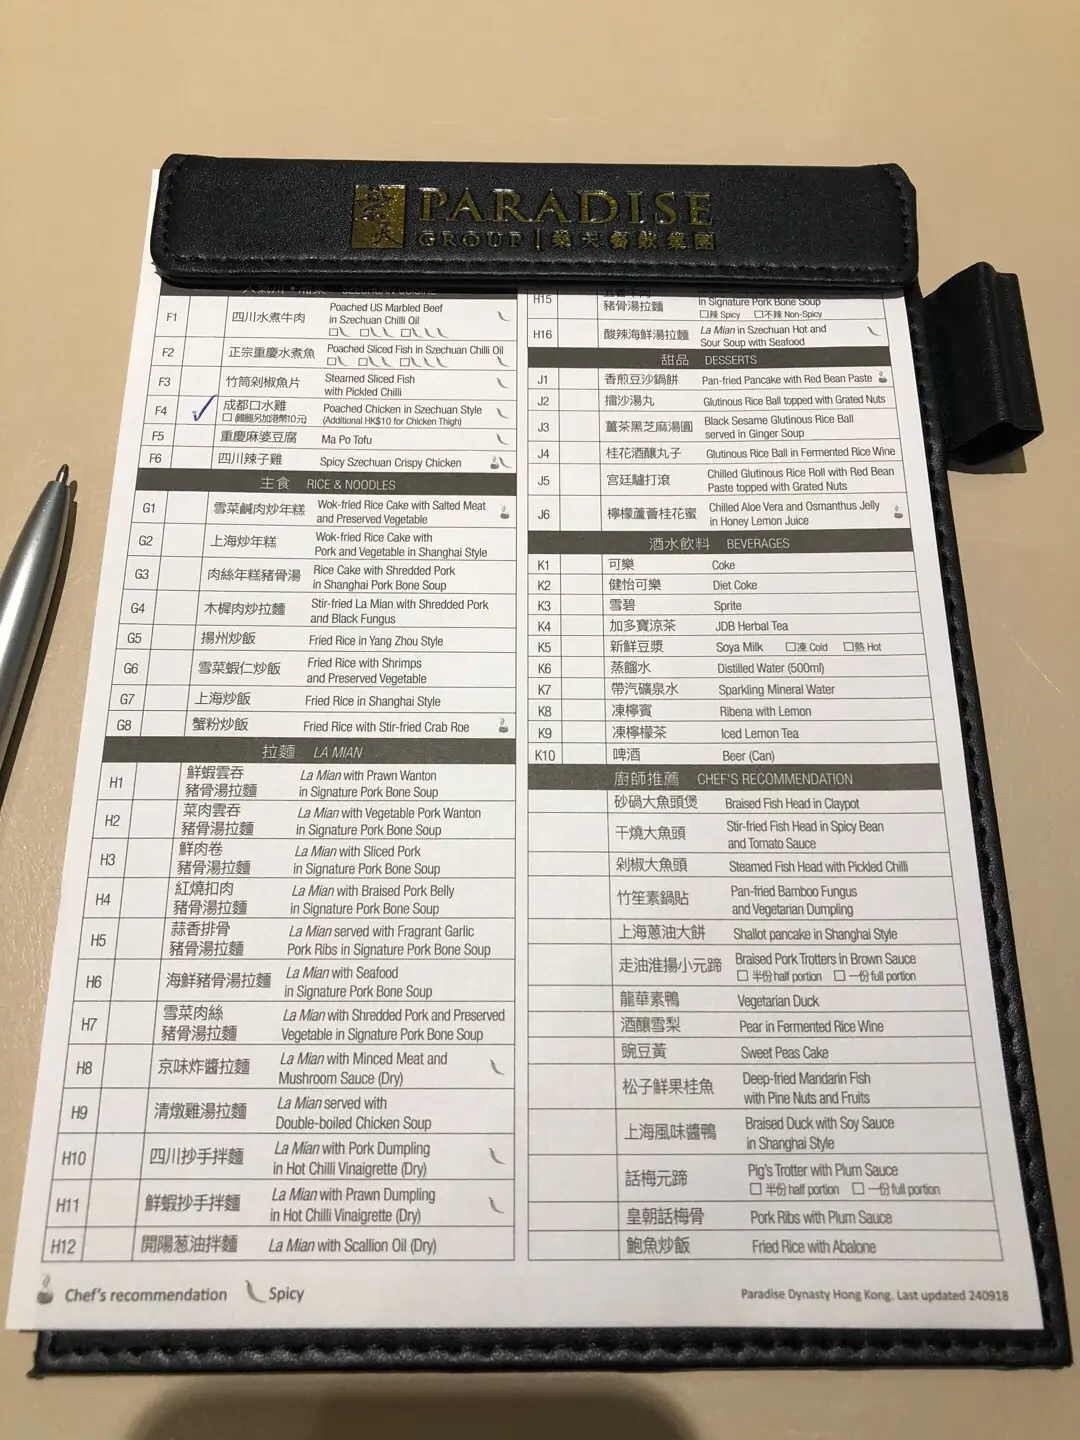 PARADISE
GROUP | 樂天餐飲集團
SZECHUAN CUISINE
F1 四川水煮牛肉 Poached US Marbled Beef
in Szechuan Chilli Oil
F2 正宗重慶水煮魚 Poached Sliced Fish in Szechuan Chilli Oil
F3 竹筒剁椒魚片 Steamed Sliced Fish
with Pickled Chilli
F4 成都口水雞 Poached Chicken in Szechuan Style
☐ 雞腿另加港幣10元) (Additional HK$10 for Chicken Thigh)
F5 重慶麻婆豆腐 Ma Po Tofu
F6 四川辣子雞 Spicy Szechuan Crispy Chicken
主食 RICE & NOODLES
G1 雪菜鹹肉炒年糕 Wok-fried Rice Cake with Salted Meat
and Preserved Vegetable
G2 上海炒年糕 Wok-fried Rice Cake with
Pork and Vegetable in Shanghai Style
G3 肉絲年糕豬骨湯 Rice Cake with Shredded Pork
in Shanghai Pork Bone Soup
G4 木樨肉炒拉麵 Stir-fried La Mian with Shredded Pork
and Black Fungus
G5 揚州炒飯 Fried Rice in Yang Zhou Style
G6 雪菜蝦仁炒飯 Fried Rice with Shrimps
and Preserved Vegetable
G7 上海炒飯 Fried Rice in Shanghai Style
G8 蟹粉炒飯 Fried Rice with Stir-fried Crab Roe
拉麵 LA MIAN
H1 鮮蝦雲吞 La Mian with Prawn Wanton
豬骨湯拉麵 in Signature Pork Bone Soup
H2 菜肉雲吞 La Mian with Vegetable Pork Wanton
豬骨湯拉麵 in Signature Pork Bone Soup
H3 鮮肉卷 La Mian with Sliced Pork
豬骨湯拉麵 in Signature Pork Bone Soup
H4 紅燒扣肉 La Mian with Braised Pork Belly
豬骨湯拉麵 in Signature Pork Bone Soup
H5 蒜香排骨 La Mian served with Fragrant Garlic
豬骨湯拉麵 Pork Ribs in Signature Pork Bone Soup
H6 海鮮豬骨湯拉麵 La Mian with Seafood
in Signature Pork Bone Soup
H7 雪菜肉絲 La Mian with Shredded Pork and Preserved
豬骨湯拉麵 Vegetable in Signature Pork Bone Soup
H8 京味炸醬拉麵 La Mian with Minced Meat and
Mushroom Sauce (Dry)
H9 清燉雞湯拉麵 La Mian served with
Double-boiled Chicken Soup
H10 四川抄手拌麵 La Mian with Pork Dumpling
in Hot Chilli Vinaigrette (Dry)
H11 鮮蝦抄手拌麵 La Mian with Prawn Dumpling
in Hot Chilli Vinaigrette (Dry)
H12 開陽葱油拌麵 La Mian with Scallion Oil (Dry)
H15 豬骨湯拉麵 in Signature Pork Bone Soup
☐辣 Spicy ☐不辣 Non-Spicy
H16 酸辣海鮮湯拉麵 La Mian in Szechuan Hot and
Sour Soup with Seafood
甜品 DESSERTS
J1 香煎豆沙鍋餅 Pan-fried Pancake with Red Bean Paste
J2 擂沙湯丸 Glutinous Rice Ball topped with Grated Nuts
J3 薑茶黑芝麻湯圓 Black Sesame Glutinous Rice Ball
served in Ginger Soup
J4 桂花酒釀丸子 Glutinous Rice Ball in Fermented Rice Wine
J5 宮廷驢打滾 Chilled Glutinous Rice Roll with Red Bean
Paste topped with Grated Nuts
J6 檸檬蘆薈桂花蜜 Chilled Aloe Vera and Osmanthus Jelly
in Honey Lemon Juice
酒水飲料 BEVERAGES
K1 可樂 Coke
K2 健怡可樂 Diet Coke
K3 雪碧 Sprite
K4 加多寶涼茶 JDB Herbal Tea
K5 新鮮豆漿 Soya Milk ☐凍 Cold ☐熱 Hot
K6 蒸餾水 Distilled Water (500ml)
K7 帶汽礦泉水 Sparkling Mineral Water
K8 凍檸賓 Ribena with Lemon
K9 凍檸檬茶 Iced Lemon Tea
K10 啤酒 Beer (Can)
廚師推薦 CHEF'S RECOMMENDATION
砂鍋大魚頭煲 Braised Fish Head in Claypot
干燒大魚頭 Stir-fried Fish Head in Spicy Bean
and Tomato Sauce
剁椒大魚頭 Steamed Fish Head with Pickled Chilli
竹笙素鍋貼 Pan-fried Bamboo Fungus
and Vegetarian Dumpling
上海蔥油大餅 Shallot pancake in Shanghai Style
走油淮揚小元蹄 Braised Pork Trotters in Brown Sauce
☐ 半份 half portion ☐ 一份 full portion
龍華素鴨 Vegetarian Duck
酒釀雪梨 Pear in Fermented Rice Wine
豌豆黃 Sweet Peas Cake
松子鮮果桂魚 Deep-fried Mandarin Fish
with Pine Nuts and Fruits
上海風味醬鴨 Braised Duck with Soy Sauce
in Shanghai Style
話梅元蹄 Pig's Trotter with Plum Sauce
☐ 半份 half portion ☐ 一份 full portion
皇朝話梅骨 Pork Ribs with Plum Sauce
鮑魚炒飯 Fried Rice with Abalone
Chef's recommendation Spicy
Paradise Dynasty Hong Kong. Last updated 240918